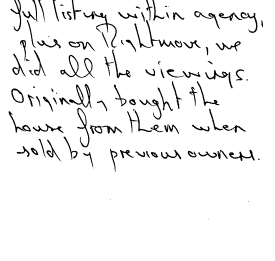 full listing within agency,
plus on Rightmove, we
did all the viewings.
Originally bought the
house from them when
sold by previous owners.